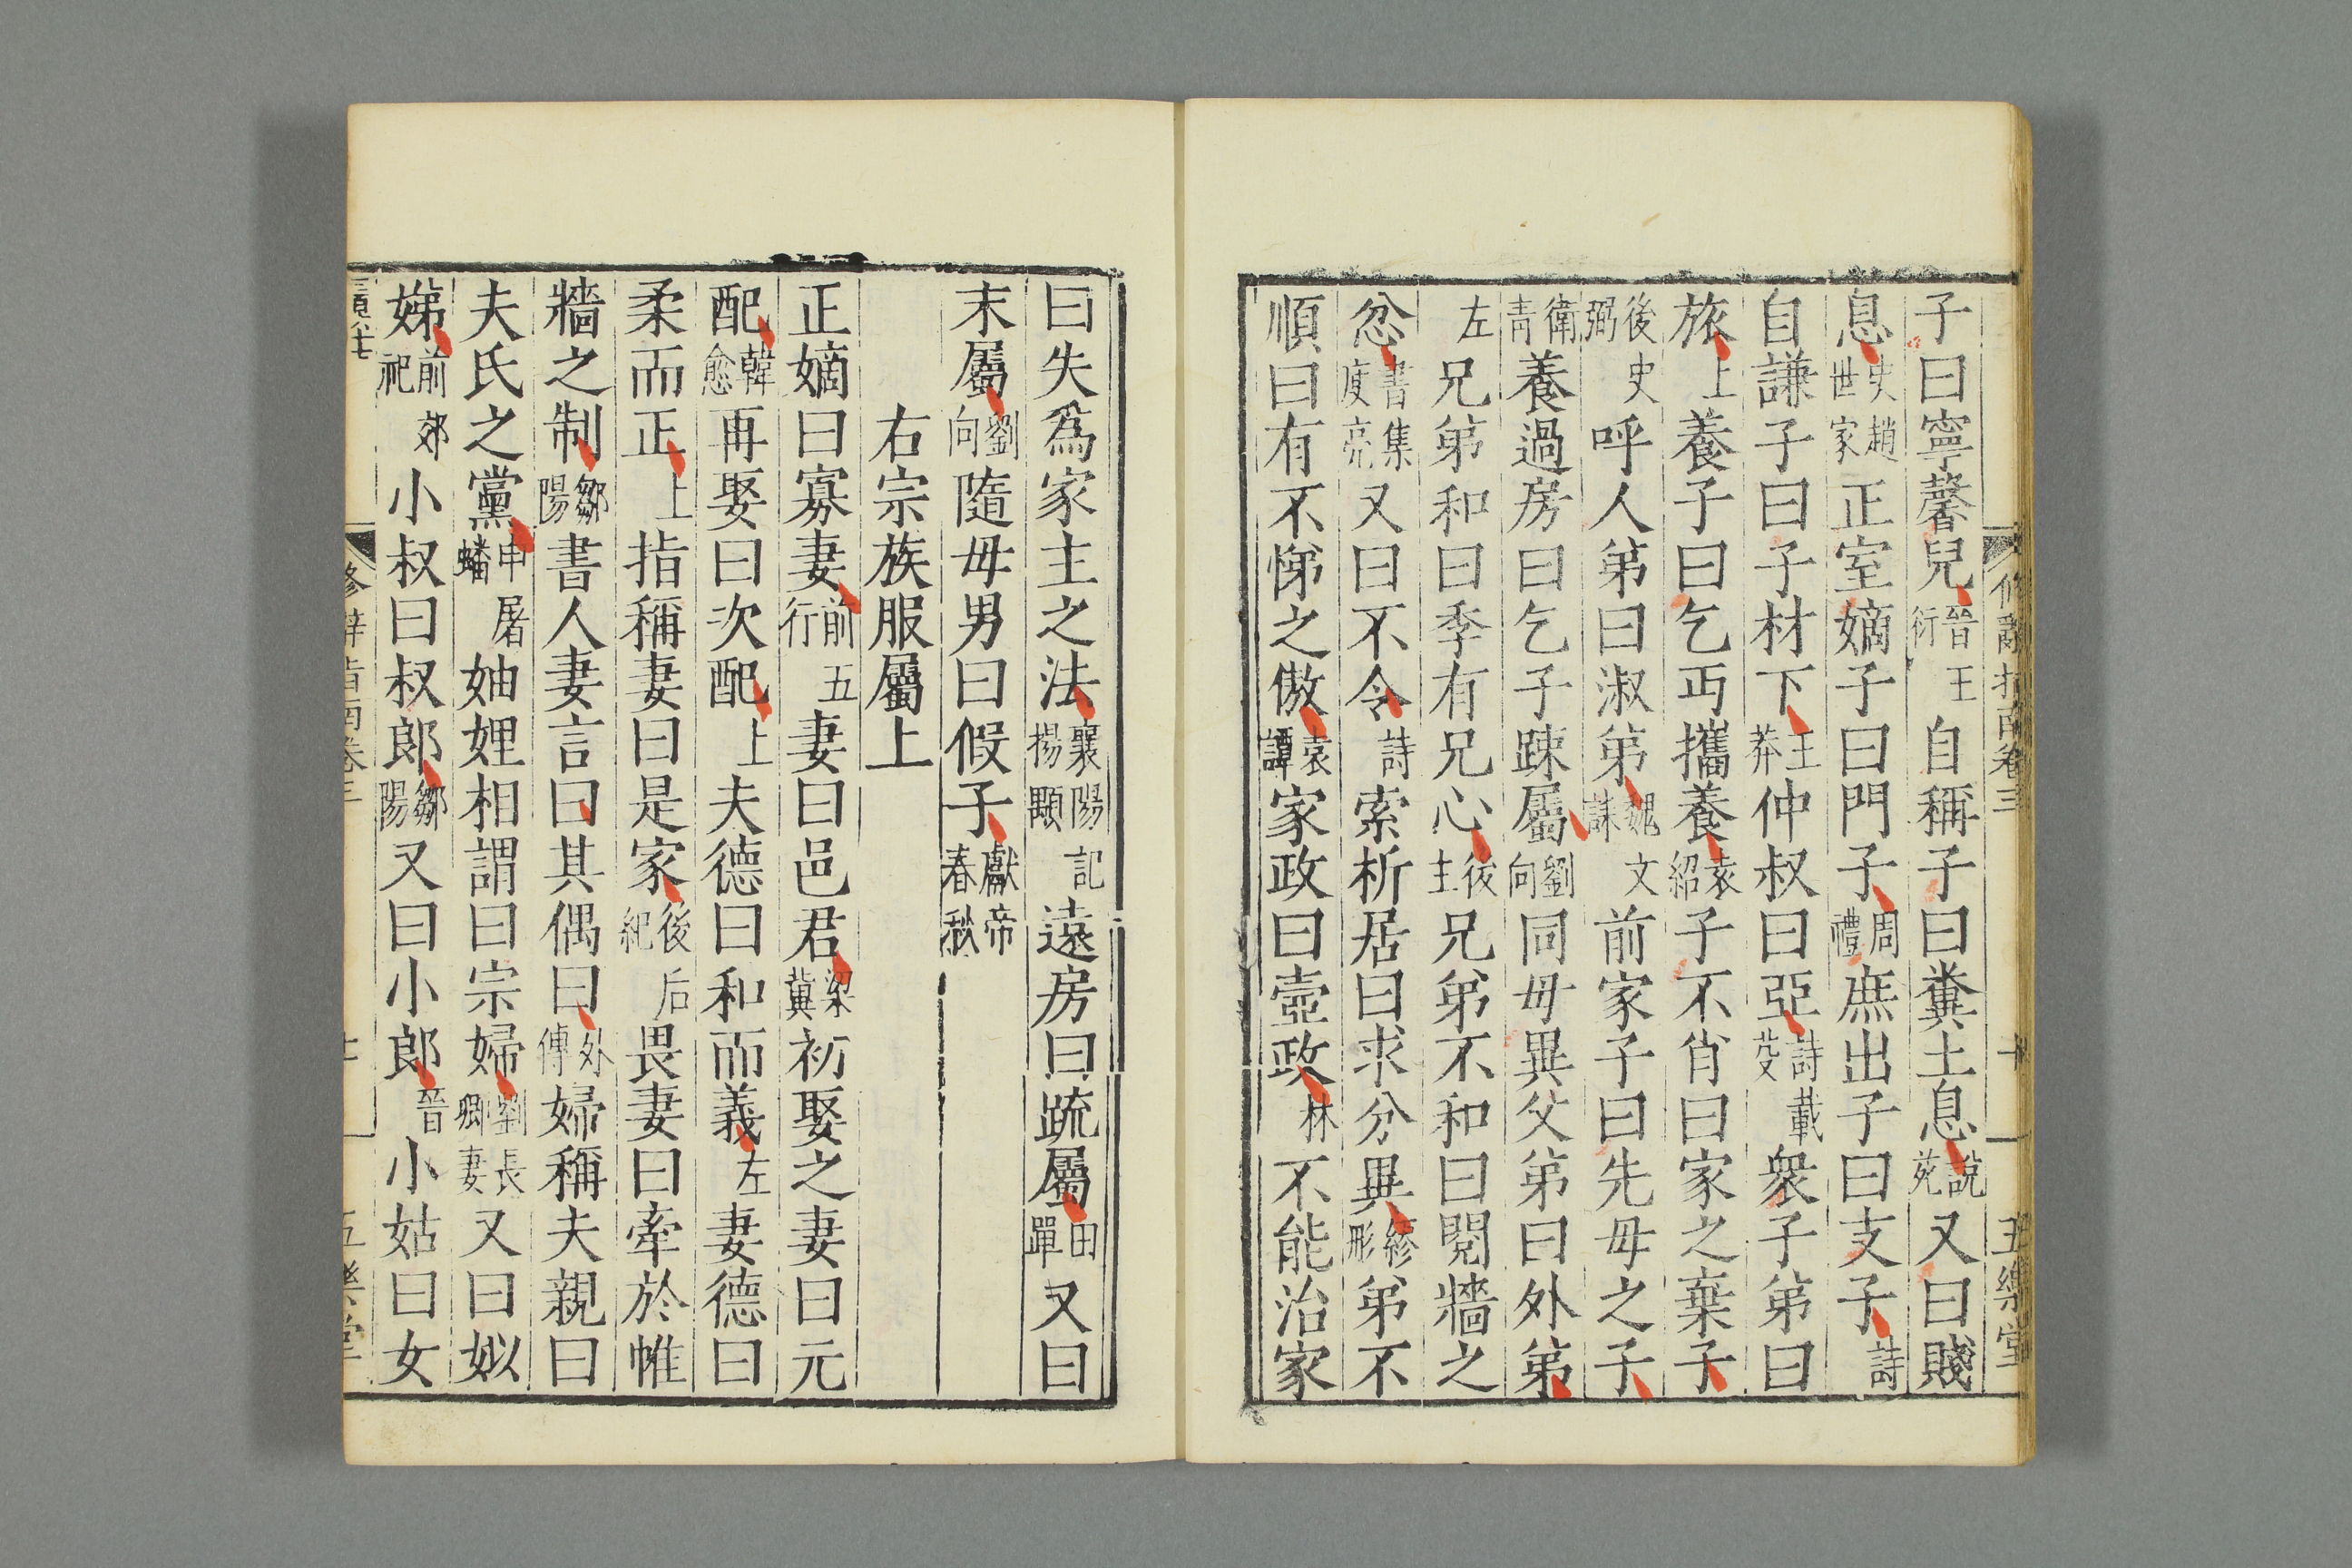 修辭指南卷三 十 五樂堂
子曰寧馨兒晉王衍自稱子曰糞土息說苑又曰賤
息史趙世家正室嫡子曰門子周禮庶出子曰支子詩
自謙子曰子材下王莽仲叔曰亞詩載芟衆子弟曰
旅上養子曰乞丐攜養袁紹子不肖曰家之棄子
後史弼呼人弟曰淑弟魏文誄前家子曰先母之子
衛青養過房曰乞子踈屬劉向同母異父弟曰外弟
左兄弟和曰季有兄心後主兄弟不和曰鬩牆之
忿書集庾亮又曰不令詩索析居曰求分異繆形弟不
順曰有不悌之傲袁譚家政曰壼政林不能治家
曰失為家主之法襄陽記楊顒遠房曰疏屬田單又曰
末屬劉向隨母男曰假子獻帝春秋
右宗族服屬上
正嫡曰寡妻前五行妻曰邑君梁冀初娶之妻曰元
配韓愈再娶曰次配上夫德曰和而義左妻德曰
柔而正上指稱妻曰是家後后紀畏妻曰牽於帷
牆之制鄒陽書人妻言曰其偶曰外傳婦稱夫親曰
夫氏之黨申屠蟠妯娌相謂曰宗婦劉長卿妻又曰姒
娣前郊祀小叔曰叔郎鄒陽又曰小郎晉小姑曰女
修辭指南卷三 五樂堂